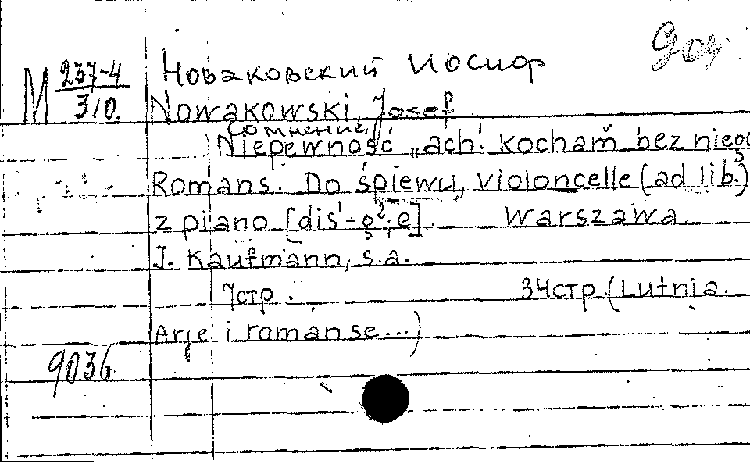 М 237-4
310.
Новаковский Иосиф
Nowakowski, Josef
Сомнение
Niepewność „ach! kocham bez
Romans. Do śpiewu, violoncelle (ad lib.)
z piano [dis¹-g²; e]. Warszawa.
J. Kaufmann, s.a.
7стр. 34стр. (Lutnia.
Arje i romanse...)
9036.